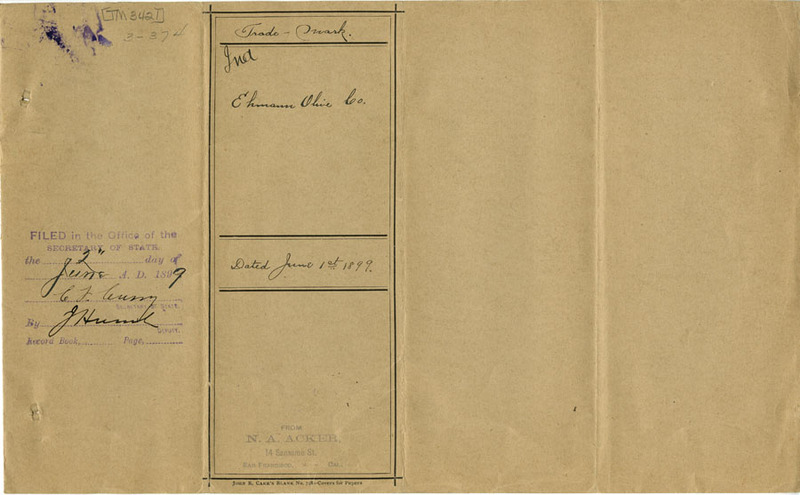 [TM 342]
3-374
Trade-Mark.
Ind
Ehmann Olive Co.
FILED in the Office of the
SECRETARY OF STATE
the 2" day of
June A. D. 1899
C. F. Curry
Secretary of State.
By J Hoesch
Deputy.
Record Book, Page,
Dated June 1st 1899.
FROM
N. A. ACKER,
14 Sansome St.
San Francisco, - - Cal.
John R. Cake's Blank No. 758—Covers for Papers